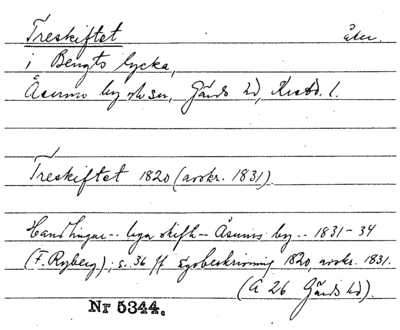 Treskiftet åker
i Bengts lycka,
Åsums by o/w sn, Gärds hd, Krstd. l.
Treskiftet 1820 (avskr. 1831).
Handlingar -- laga skifte -- Åsums by -- 1831-34
(F. Ryberg); s. 36 ff Egobeskrivning 1820, avskr. 1831.
(A 26 Gärds hd).
Nr 5344.